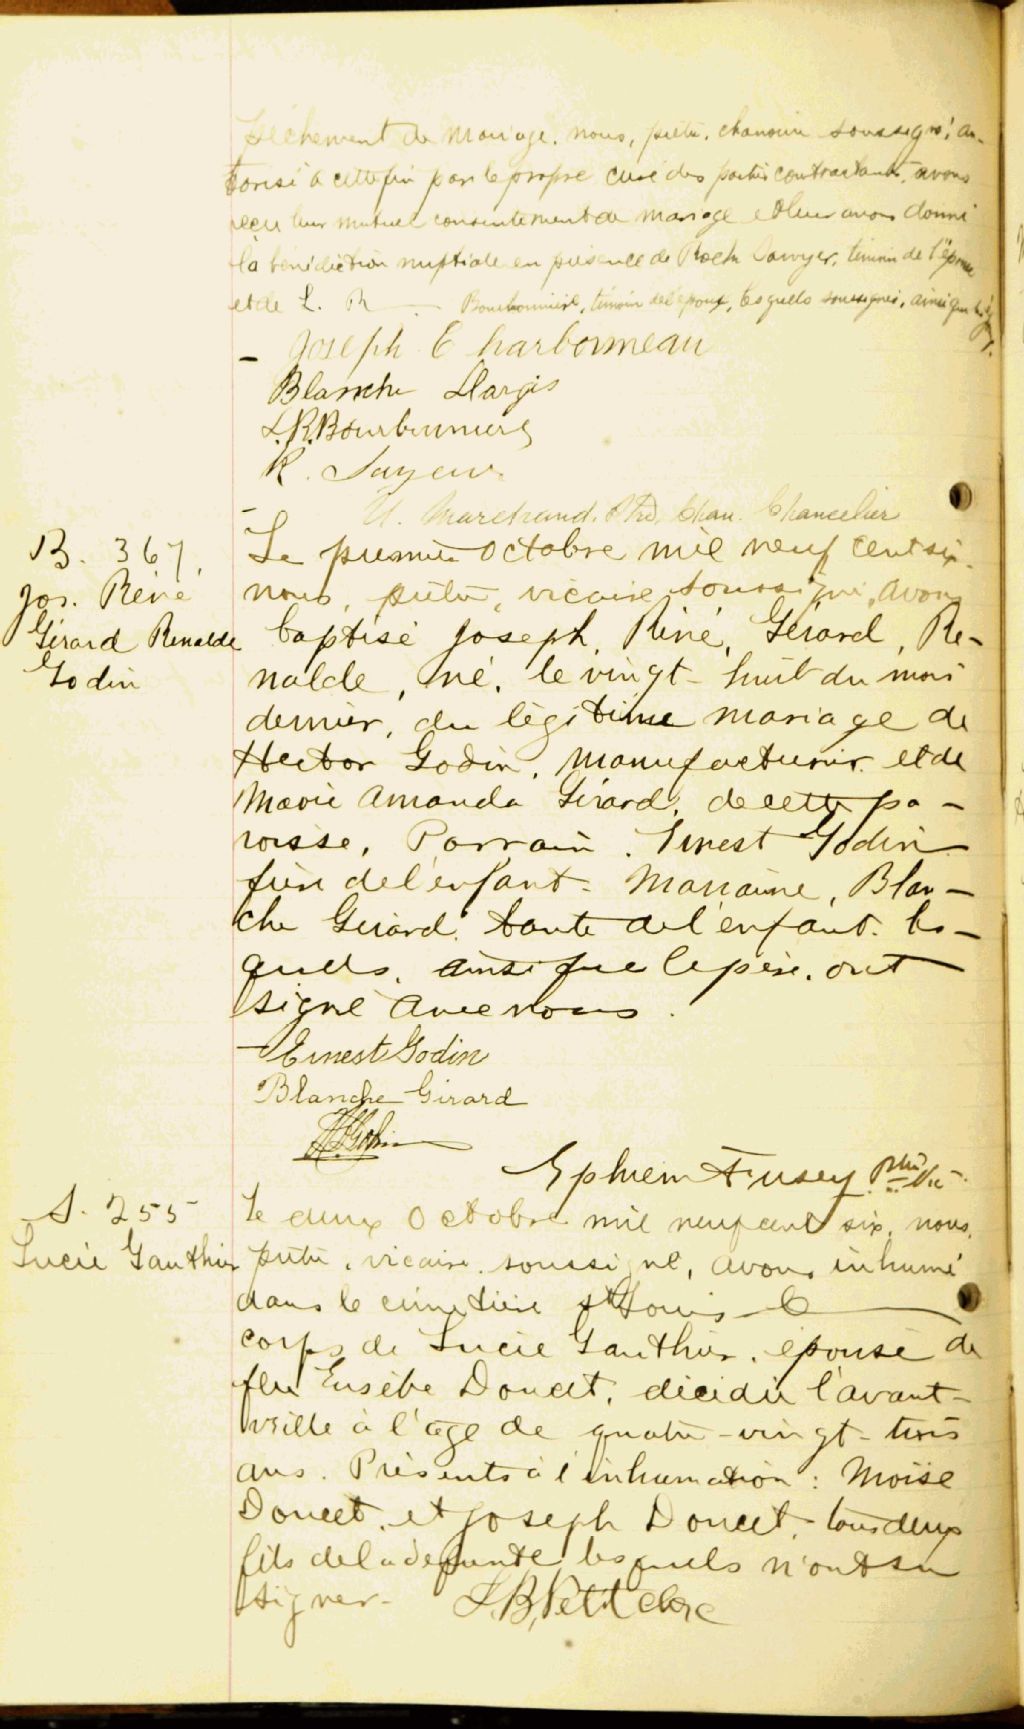 pêchement de mariage, nous, prêtre, chanoine soussigné, au-
torisé à cette fin par le propre curé des parties contractantes, avons
reçu leur mutuel consentement de mariage et leur avons donné
la bénédiction nuptiale en présence de Roch Sawyer, témoin de l'épouse
et de L. R. Bourbonnière, témoin de l'époux, lesquels soussignés, ainsi que
- Joseph Charbonneau
Blanche Dargis
L.R. Bourbonniere
R. Sayeur
- U. Marchand, Ptre, Chan. Chancelier
B. 367.
Jos. Réné
Gérard Renalde
Godin
Le premier Octobre mil neuf cent six
nous, prêtre, vicaire soussigné, avons
baptisé Joseph, Réné, Gérard, Re-
nalde, né, le vingt-huit du mois
dernier, du légitime mariage de
Hector Godin, manufacturier et de
Marie Amanda Girard, de cette pa-
roisse, Parrain, Ernest Godin
frère de l'enfant - Marraine, Blan-
che Girard, tante de l'enfant. les-
quels, ainsi que le père, ont
signé avec nous.
- Ernest Godin
Blanche Girard
H. Godin
Ephrem Fusey ptre Vic.
S. 255
Lucie Gauthier
Le deux Octobre mil neuf cent six, nous,
prêtre, vicaire, soussigné, avons inhumé
dans le cimetière St Louis le
corps de Lucie Gauthier, épouse de
feu Eusèbe Doucet, décédée l'avant-
veille à l'âge de quatre-vingt-trois
ans. Présents à l'inhumation : Moïse
Doucet, et Joseph Doucet, tous deux
fils de la défunte, lesquels n'ont su
signer - L.B. Petitclerc